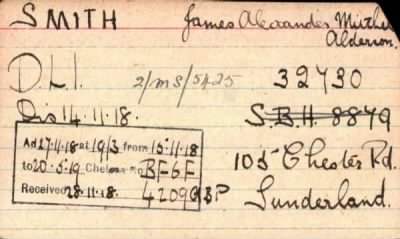 SMITH James Alexander
Alderson.
D.L.I. 2/MS/5425 32430
Dis 14.11.18. S.B.H. 8879
Ad 27.11.18 at 19/3 from 15.11.18
to 20.5.19 Chelsea No. BF6F
Received 28.11.18. 4209 BP
105 Chester Rd.
Sunderland.